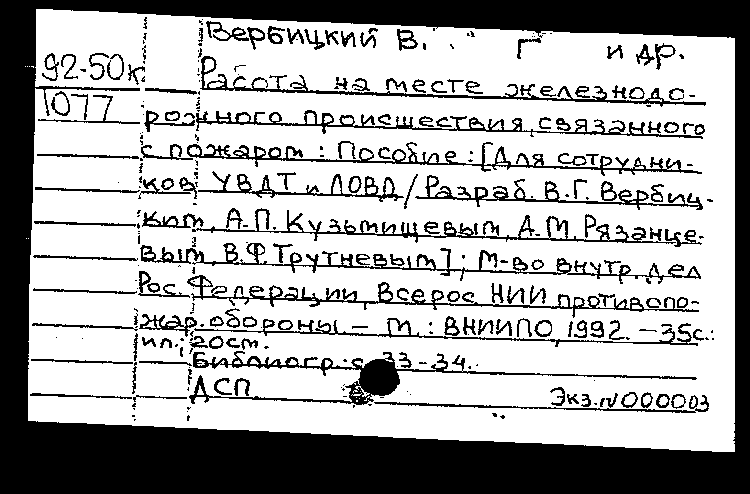 Вербицкий В. Г и др.
92-50к Работа на месте железнодо-
1077 рожного происшествия, связанного
с пожаром : Пособие : [Для сотрудни-
ков УВДТ и ЛОВД / Разраб. В.Г. Вербиц-
ким, А.П. Кузьмищевым, А.М. Рязанце-
вым, В.Ф. Трутневым]; М-во внутр. дел
Рос. Федерации, Всерос НИИ противопо-
жар. обороны — М. : ВНИИПО, 1992. — 35с.:
ил.; 20см.
Библиогр.: с. 33-34.
ДСП. Экз. N 000003